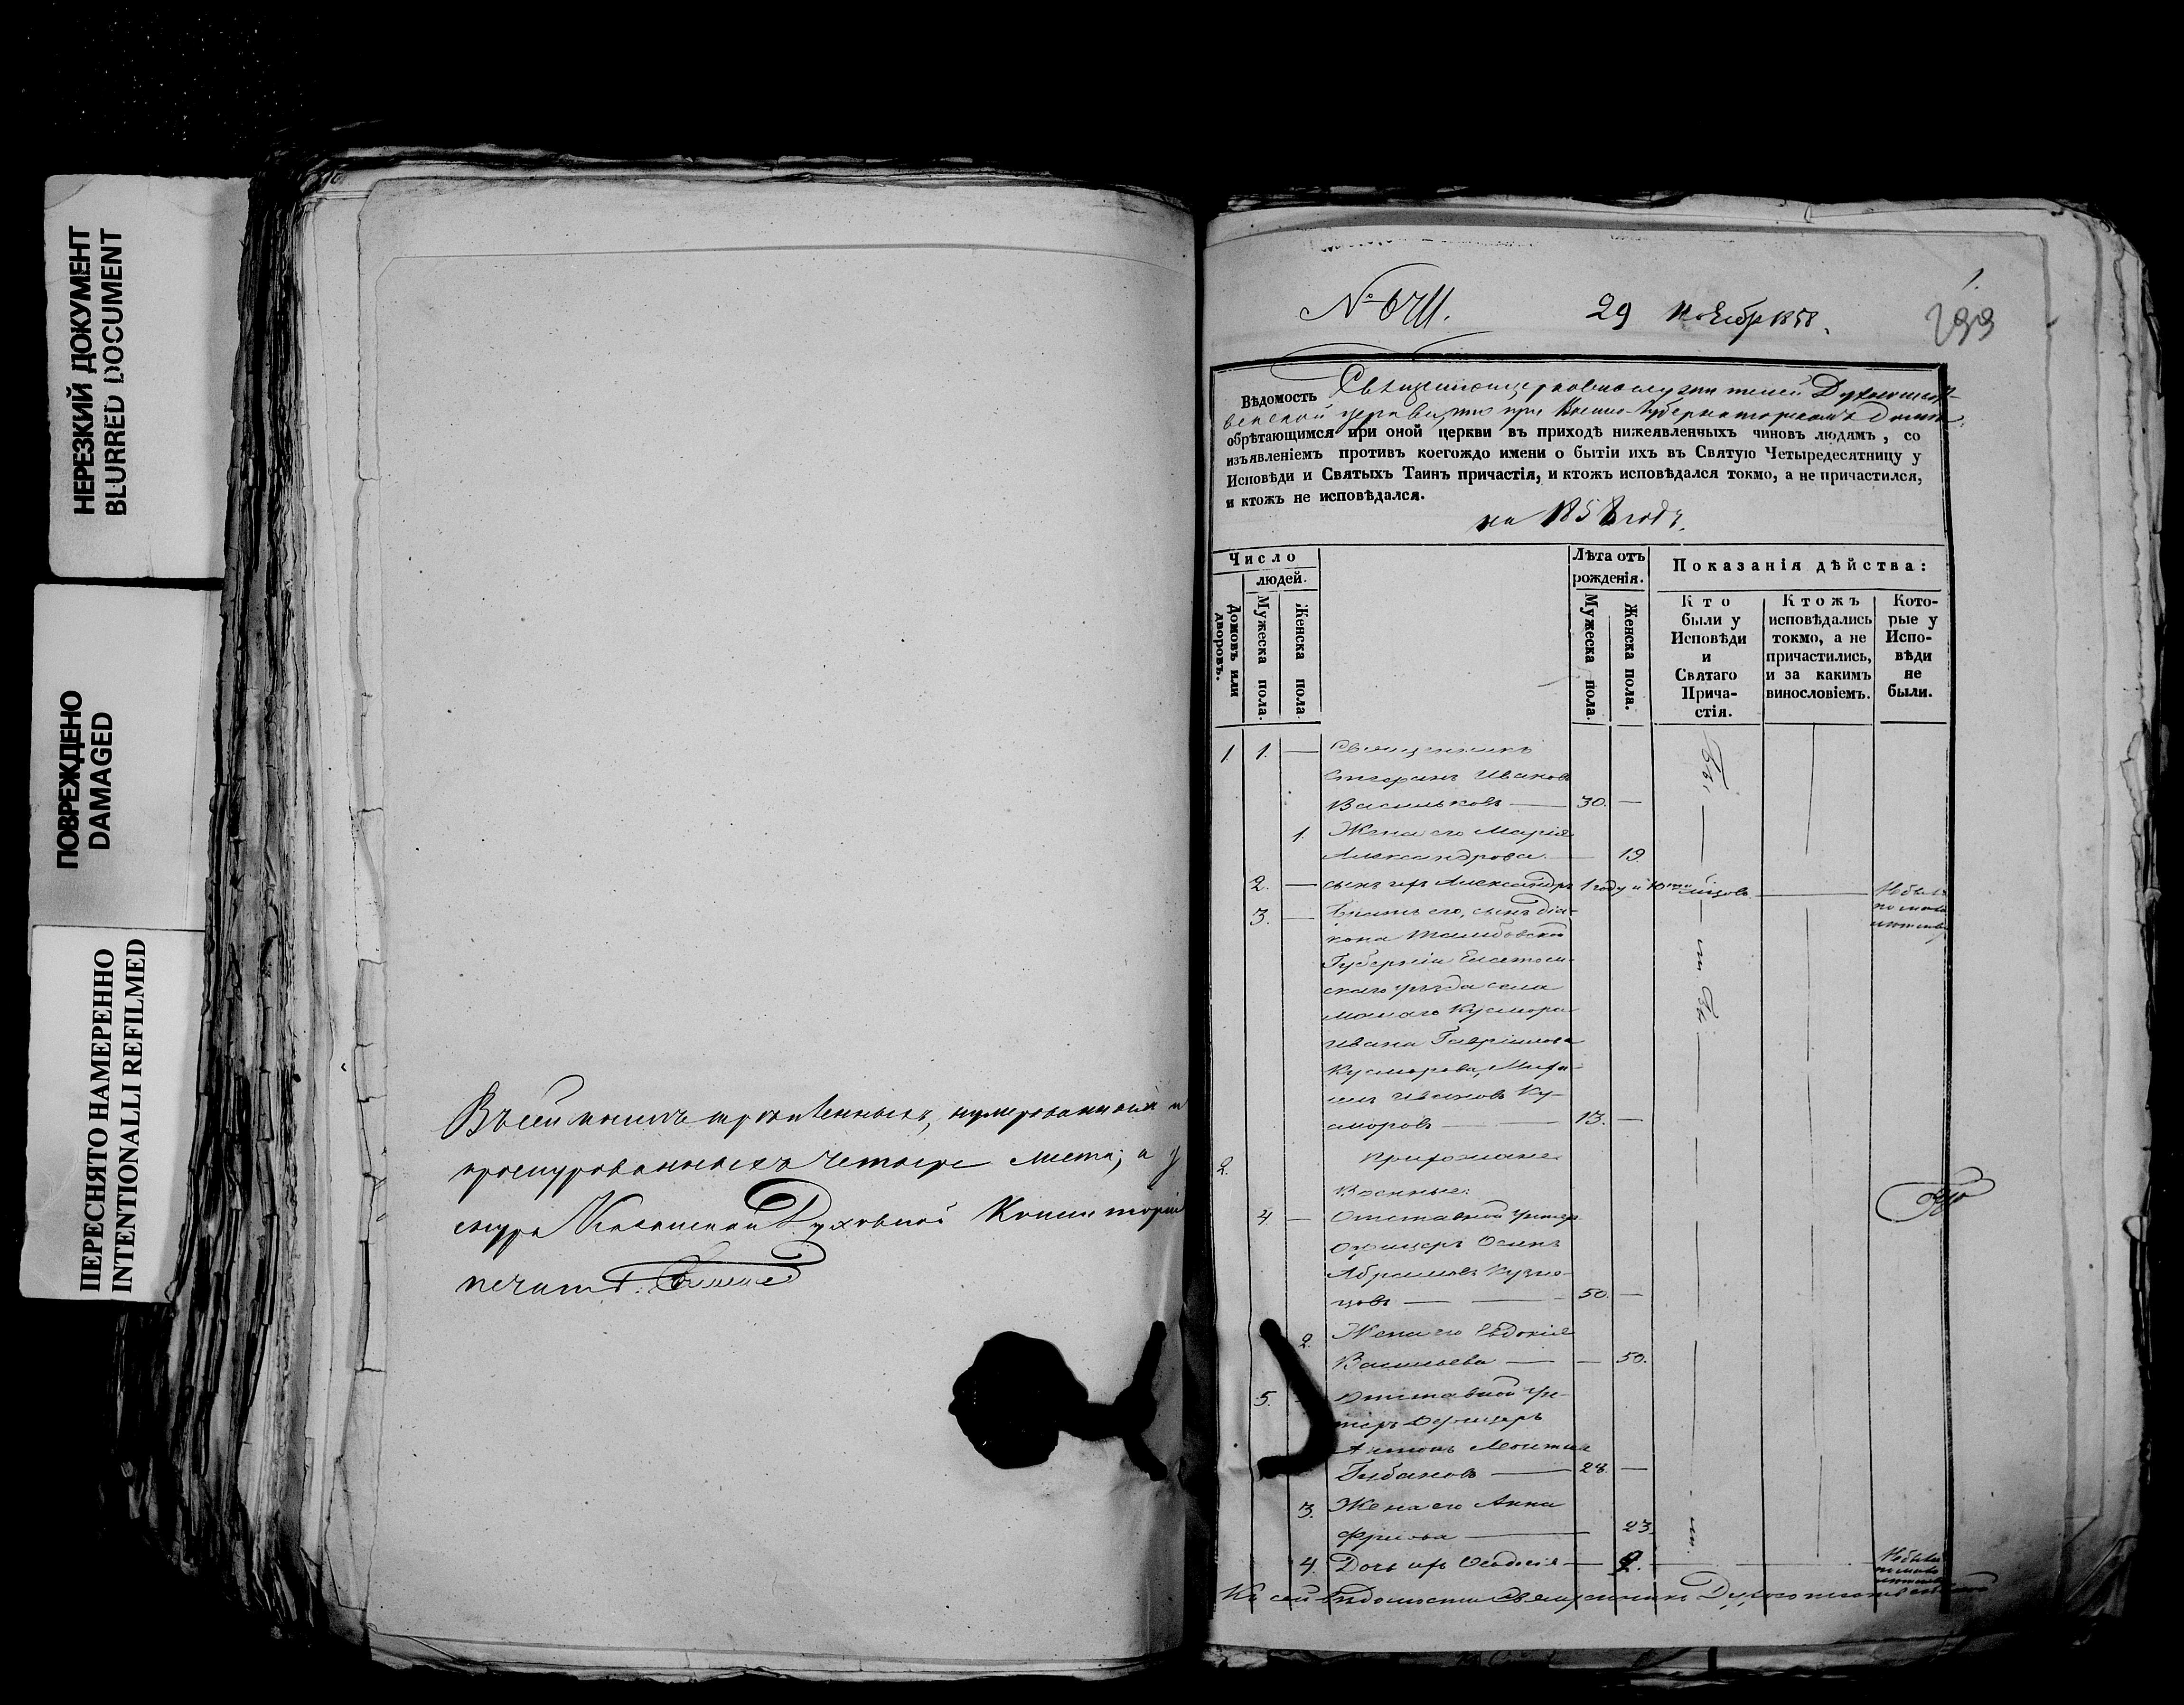 НЕРЕЗКИЙ ДОКУМЕНТ
BLURRED DOCUMENT
ПОВРЕЖДЕНО
DAMAGED
ПЕРЕСНЯТО НАМЕРЕННО
INTENTIONALLI REFILMED
Въ сей книге нумерованныхъ и
прошнурованныхъ четыре листа; а у
шнура Казанской Духовной Консисторіи
печать.
29 Ноября 1858.
1.
299
Вѣдомость Священноцерковнослужителей Духосошест-
венской церкви, что при Военно-Губернаторскомъ домѣ,
обрѣтающимся при оной церкви въ приходѣ нижеявленныхъ чиновъ людямъ, со
изъявленіемъ противъ коегождо имени о бытіи ихъ въ Святую Четыредесятницу у
Исповѣди и Святыхъ Таинъ причастія, и ктожъ исповѣдался токмо, а не причастился,
и ктожъ не исповѣдался.
на 1858 годъ.
Число
людей.
Домовъ или дворовъ.
Мужеска пола.
Женска пола.
Лѣта отъ рожденія.
Мужеска пола.
Женска пола.
Показанія дѣйства:
Кто были у Исповѣди и Святаго Прича-стія.
Ктожъ исповѣдались токмо, а не причастились, и за какимъ винословіемъ.
Кото-рые у Испо-вѣди не были.
1. 1. — Священникъ
Стефанъ Ивановъ
Васильковъ — 30. —
1. Жена его Марія
Александрова — 19.
2. — сынъ ихъ Александръ 1 году и 10ти мѣсяцовъ
3. — Братъ его, сынъ діа-
кона Тамбовской
Губерніи Елатом-
скаго уѣзда села
малаго Кусмора
Ивана Гавріилова
Кусморова, Михаи-
илъ Ивановъ Ку-
сморовъ — 13. —
Прихожане
2.
Военные:
4 — Отставной Унтеръ
Офицеръ Осипъ
Абрамовъ Кузне-
цовъ — 50. —
2. Жена его Евдокія
Васильева — 50.
5. Отставной Ун-
теръ Офицеръ
Антонъ
Губановъ — 28. —
3. Жена его Анна
23.
4. Дочь ихъ — 2.
Къ сей вѣдомости Священникъ Духосошественской